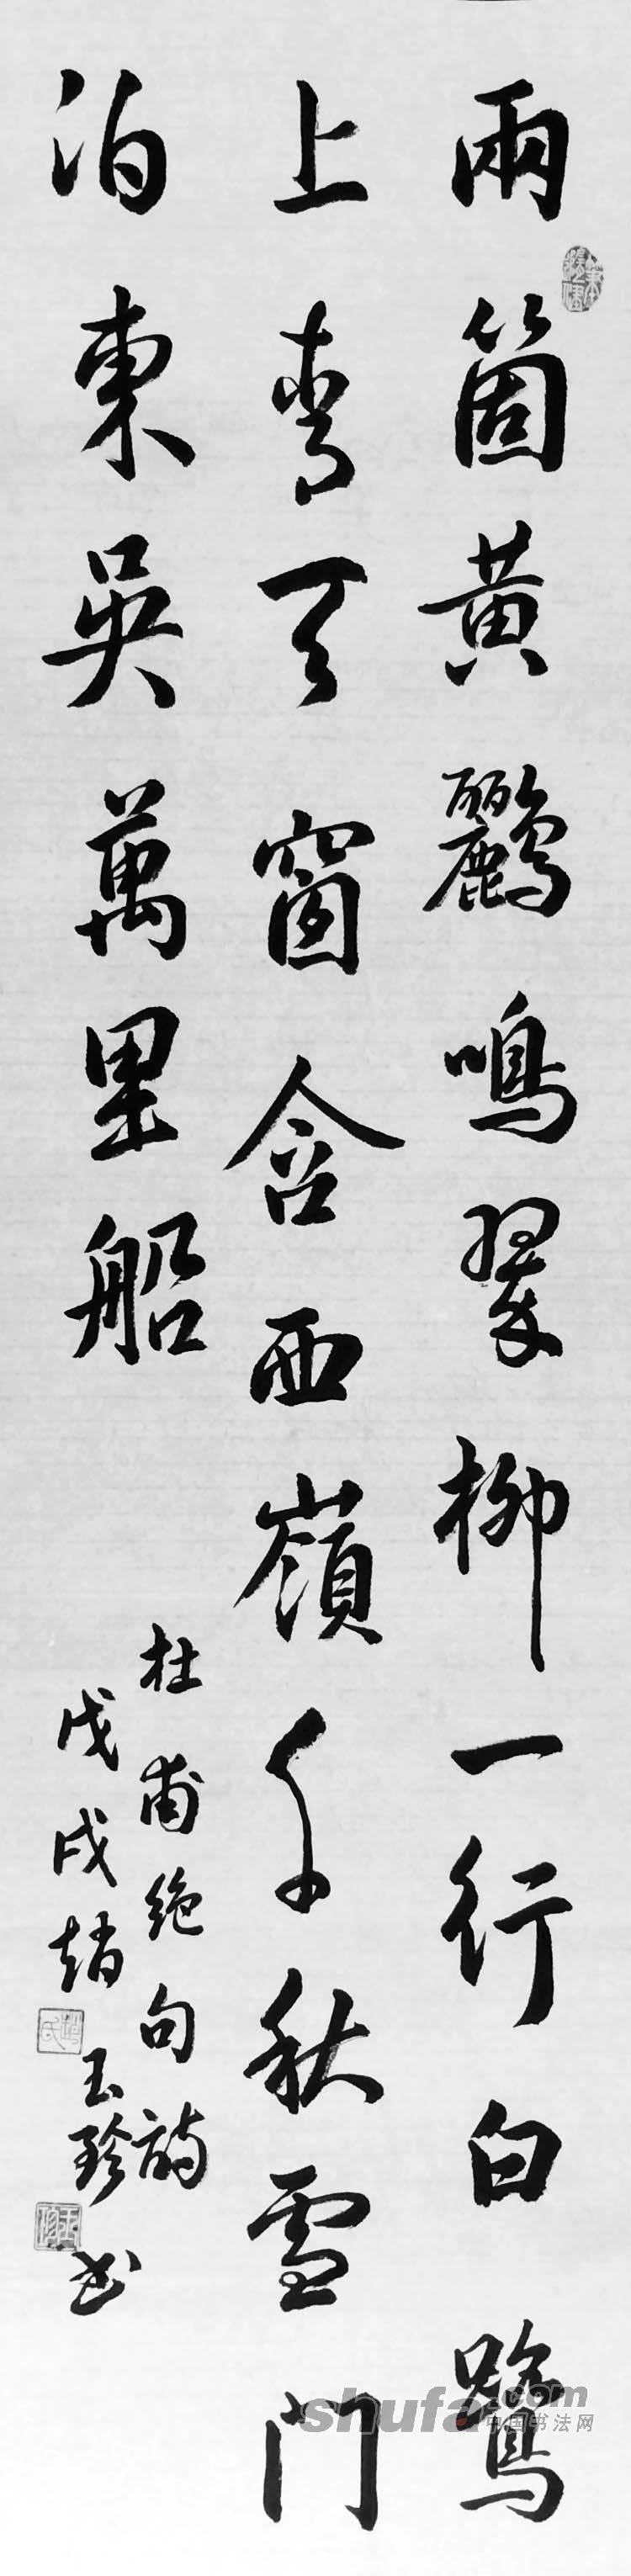 兩箇黃鸝鳴翠柳一行白鷺
上青天窗含西嶺千秋雪門
泊東吳萬里船
杜甫绝句詩
戊戌趙玉珍书
趙氏
shufa.com
中国书法网